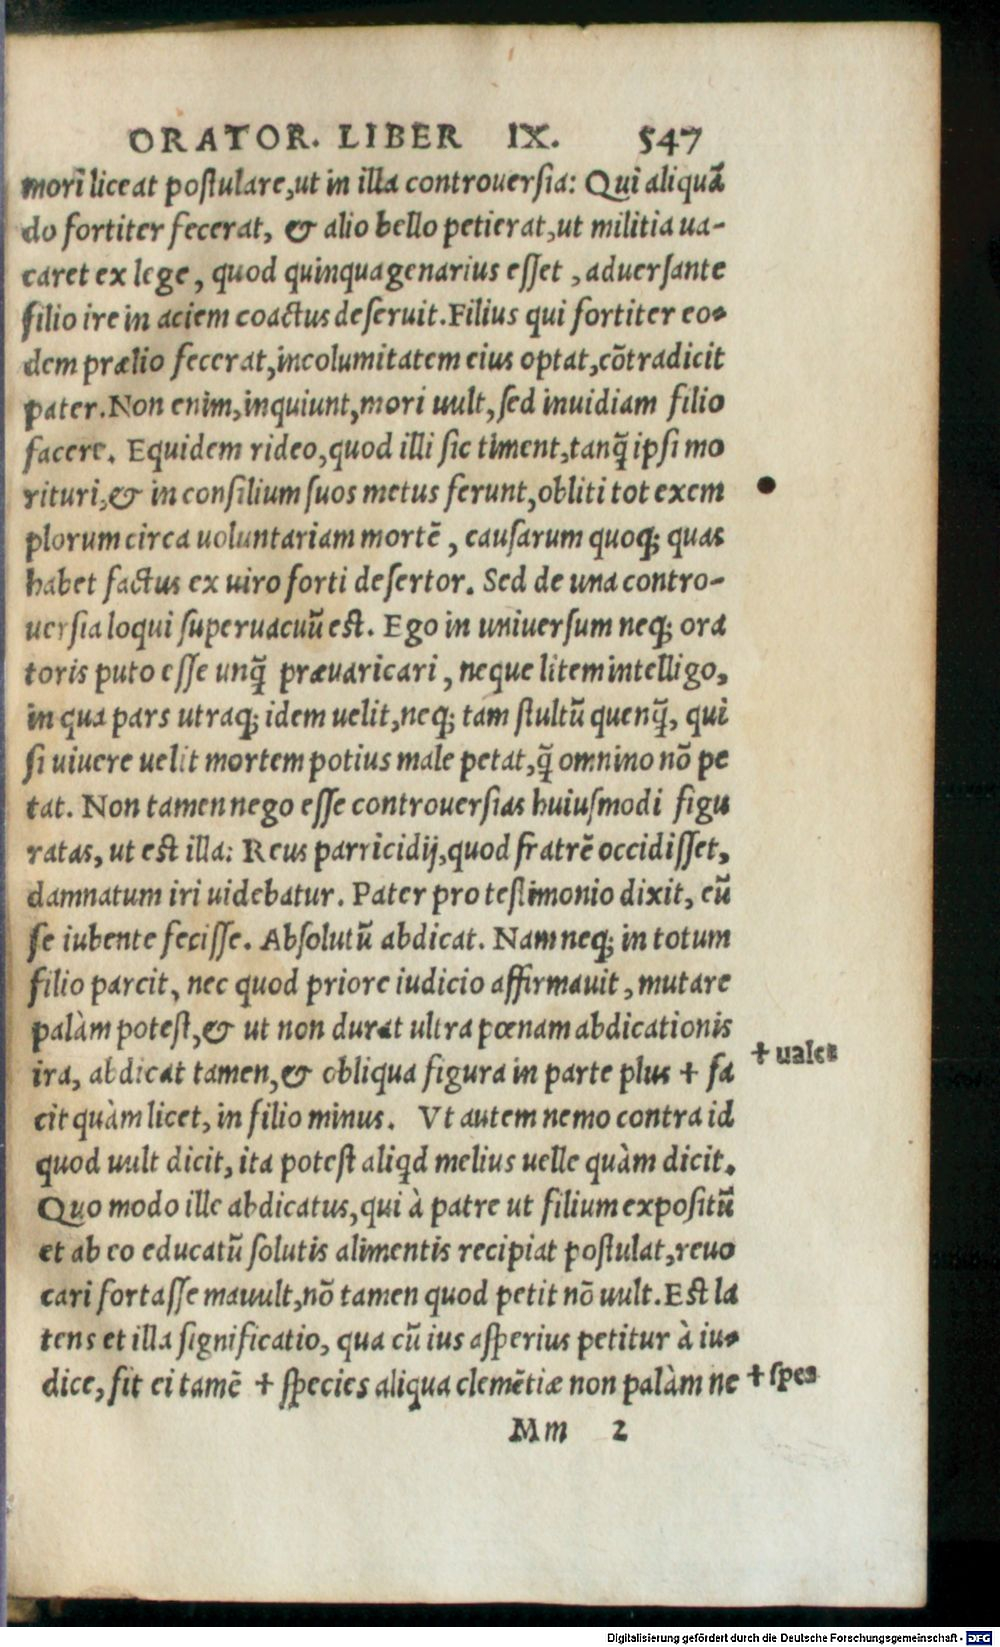 ORATOR. LIBER IX. 547
mori liceat postulare,ut in illa controuersia: Qui aliquā
do fortiter fecerat, & alio bello petierat,ut militia ua-
caret ex lege, quod quinquagenarius esset, aduersante
filio ire in aciem coactus deseruit.Filius qui fortiter eo-
dem prælio fecerat,incolumitatem eius optat,cōtradicit
pater.Non enim,inquiunt,mori uult,sed inuidiam filio
facere. Equidem rideo,quod illi sic timent,tanq̄ ipsi mo
rituri,& in consilium suos metus ferunt,obliti tot exem
plorum circa uoluntariam mortē, causarum quoq; quas
habet factus ex uiro forti desertor. Sed de una contro-
uersia loqui superuacuū est. Ego in uniuersum neq; ora
toris puto esse unq̄ præuaricari, neque litem intelligo,
in qua pars utraq; idem uelit,neq; tam stultū quenq̄, qui
si uiuere uelit mortem potius male petat,q̄ omnino nō pe
tat. Non tamen nego esse controuersias huiusmodi figu
ratas, ut est illa: Reus parricidij,quod fratrē occidisset,
damnatum iri uidebatur. Pater pro testimonio dixit, eū
se iubente fecisse. Absolutū abdicat. Nam neq; in totum
filio parcit, nec quod priore iudicio affirmauit, mutare
palàm potest,& ut non durat ultra pœnam abdicationis
ira, abdicat tamen,& obliqua figura in parte plus + fa
+ uales
cit quàm licet, in filio minus. Vt autem nemo contra id
quod uult dicit, ita potest aliqd melius uelle quàm dicit.
Quo modo ille abdicatus,qui à patre ut filium expositū
et ab eo educatū solutis alimentis recipiat postulat,reuo
cari fortasse mauult,nō tamen quod petit nō uult.Est la
tens et illa significatio, qua cū ius asperius petitur à iu-
dice, fit ei tamē + species aliqua clemētiæ non palàm ne
+ spes
Mm 2
Digitalisierung gefördert durch die Deutsche Forschungsgemeinschaft - DFG